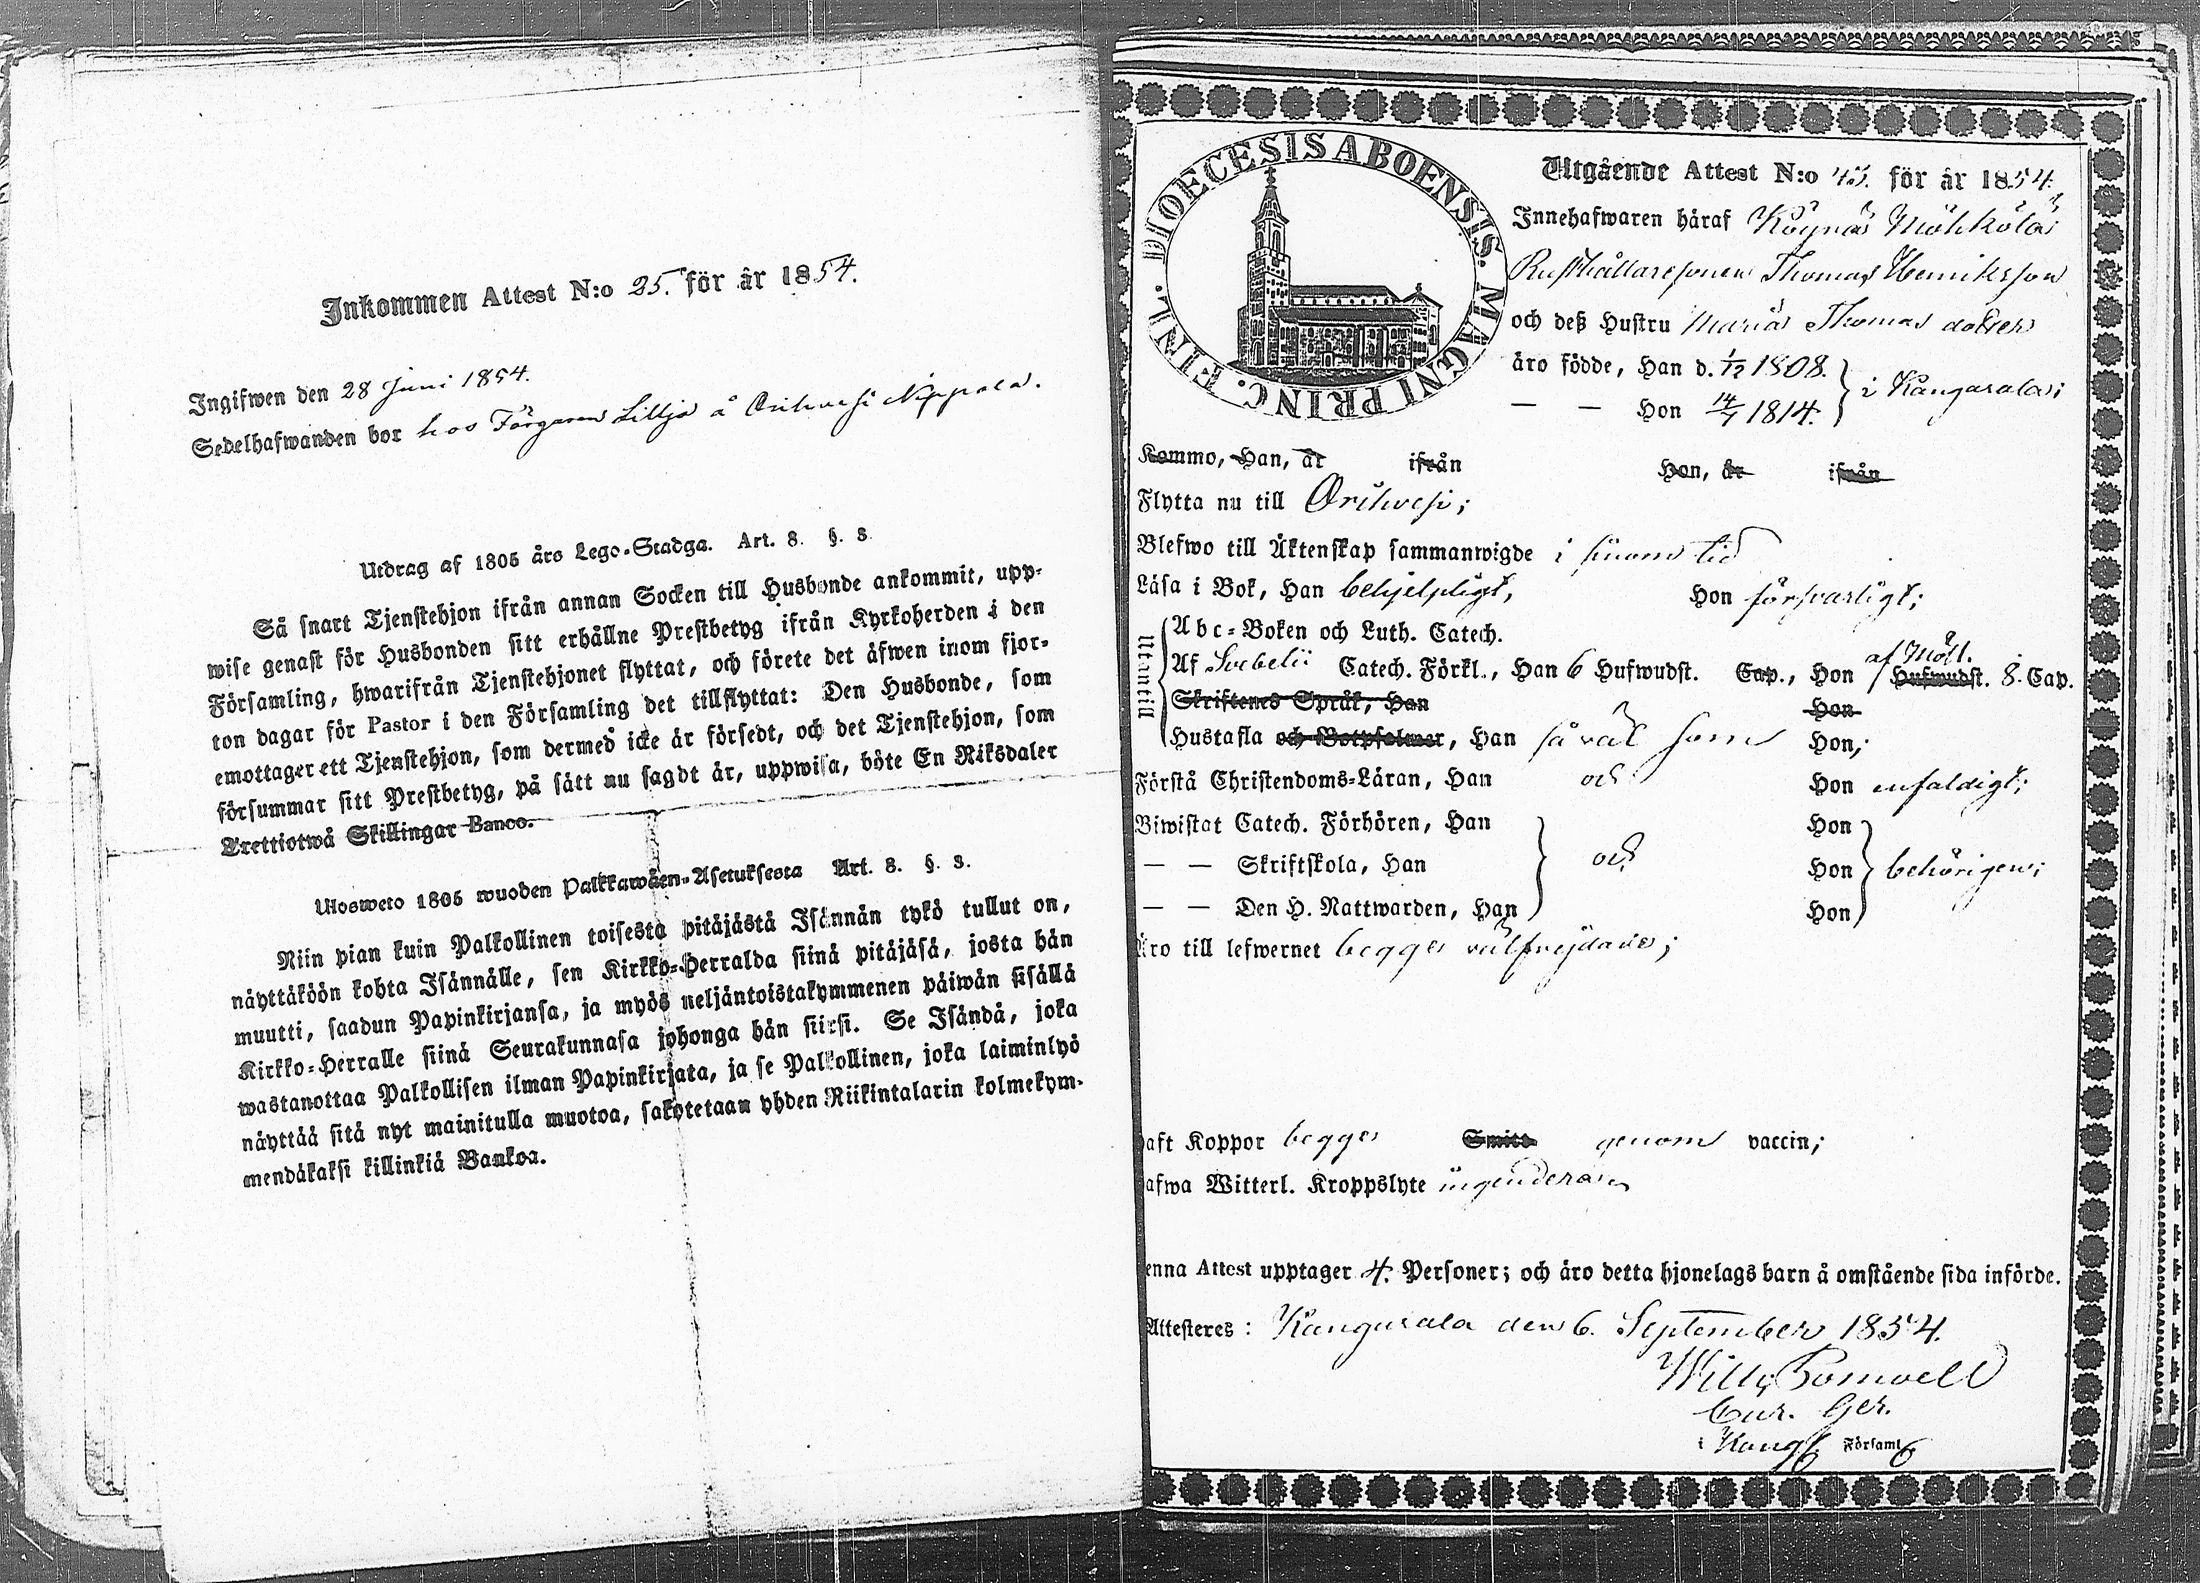 Inkommen Attest N:o 25. för år 1854.
Ingifwen den 28 Juni 1854.
Sedelhafwanden bor hos Färgaren Lillja å Orihvesi Nappala.
Utdrag af 1805 års Lego-Stadga. Art. 8. §. 3
Så snart Tjenstehjon ifrån annan Socken till Husbonde ankommit, upp-
wise genast för Husbonden sitt erhållne Prestbetyg ifrån Kyrkoherden i den
Församling, hwarifrån Tjenstehjonet flyttat, och förete det äfwen inom fjor-
ton dagar för Pastor i den Församling det tillflyttat: Den Husbonde, som
emottager ett Tjenstehjon, som dermed icke är försedt, och det Tjenstehjon, som
försummar sitt Prestbetyg, på sätt nu sagdt är, uppwisa, böte En Riksdaler
Trettiotwå Skillingar Banco.
Ulosweto 1805 wuoden Palkkawäen-Asetuksesta Art. 8. §. 3.
Niin pian kuin Palkollinen toisesta pitäjästä Isännän tykö tullut on,
näyttäköön kohta Isännälle, sen Kirkko-Herralda siinä pitäjäsä, josta hän
muutti, saadun Papinkirjansa, ja myös neljäntoistakymmenen päiwän sisällä
Kirkko-Herralle siinä Seurakunnasa johonga hän siirsi. Se Isändä, joka
wastanottaa Palkollisen ilman Papinkirjata, ja se Palkollinen, joka laiminlyö
näyttää sitä nyt mainitulla muotoa, sakotetaan yhden Riikintalarin kolmekym-
mendäkaksi killinkiä Bankoa.
DIOECESIS ABOENSIS. MAGNI PRINC. FINL.
Utgående Attest N:o 45. för år 1854.
Innehafwaren häraf Köyräs Möhkölä
Rusthållaresonen Thomas Henriksson
och deß Hustru Maria Thomas dotter
äro födde, Han d. 1/12 1808.
— — Hon 14/7 1814. i Kangasala;
Kommo, Han, år ifrån Hon, år ifrån
Flytta nu till Orihvesi;
Blefwo till Äktenskap sammanwigde i sinom tid
Läsa i Bok, Han behjelpligt, Hon försvarligt;
Utantill
Abc-Boken och Luth. Catech.
Af Svebelii Catech. Förkl., Han 6 Hufwudst. Cap., Hon af Möll. Hufwudst. 8. Cap.
Skriftenes Språk, Han Hon
Hustafla och Botpsalmer, Han så väl som Hon;
Förstå Christendoms-Läran, Han och Hon enfaldigt;
Biwistat Catech. Förhören, Han Hon
— — Skriftskola, Han och Hon behörigen;
— — Den H. Nattwarden, Han Hon
äro till lefwernet begge välfrejdade;
haft Koppor begge Smitt genom vaccin;
hafwa Witterl. Kroppslyte ingendera
enna Attest upptager 4. Personer; och äro detta hjonelags barn å omstående sida införde.
Attesteres: Kangasala den 6. September 1854.
Cur. Ger.
i Kang. Församl.